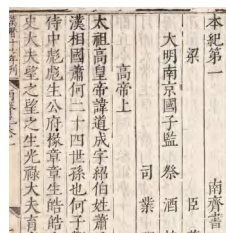 本紀第一 南齊書
梁 臣
大明南京國子監 祭酒
司業
高帝上
太祖高皇帝諱道成字紹伯姓蕭
漢相國蕭何二十四世孫也何子
侍中彪彪生公府掾章章生皓皓
史大夫望之望之生光祿大夫育